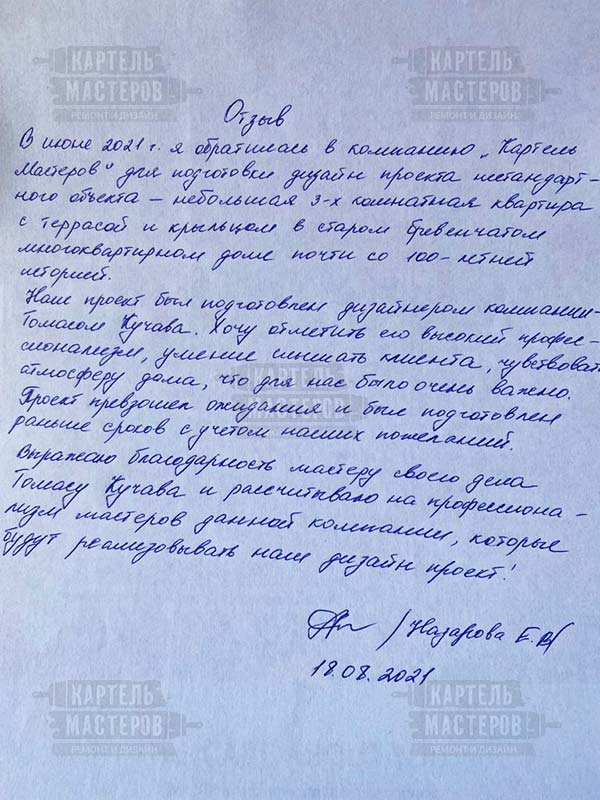 КАРТЕЛЬ МАСТЕРОВ
РЕМОНТ И ДИЗАЙН
КАРТЕЛЬ МАСТЕРОВ
РЕМОНТ И ДИЗАЙН
Отзыв
В июне 2021 г. я обратилась в компанию „Картель
Мастеров" для подготовки дизайн проекта нестандарт-
ного объекта – небольшая 3-х комнатная квартира
с террасой и крыльцом в старом бревенчатом
многоквартирном доме почти со 100-летней
историей.
Наш проект был подготовлен дизайнером компании-
Томасом Кучава. Хочу отметить его высокий профес-
сионализм, умение слышать клиента, чувствовать
атмосферу дома, что для нас было очень важно.
Проект превзошел ожидания и был подготовлен
раньше сроков с учетом наших пожеланий.
Выражаю благодарность мастеру своего дела
Томасу Кучава и рассчитываю на профессиона-
лизм мастеров данной компании, которые
будут реализовывать наш дизайн проект!
/Назарова Е.В/
18.08.2021
КАРТЕЛЬ МАСТЕРОВ
РЕМОНТ И ДИЗАЙН
КАРТЕЛЬ МАСТЕРОВ
РЕМОНТ И ДИЗАЙН